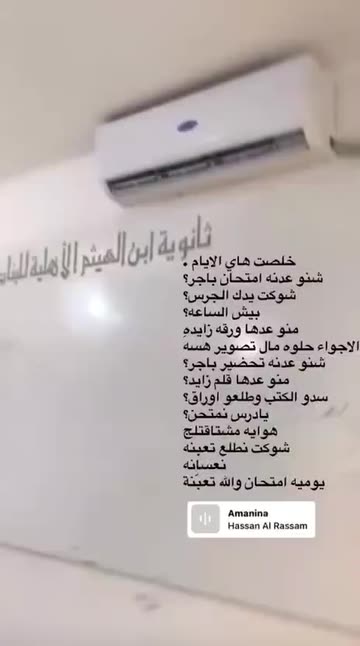 ثانوية ابن الهيثم الأهلية للبنات
خلصت هاي الايام .
شنو عدنه امتحان باجر؟
شوكت يدك الجرس؟
بيش الساعه؟
منو عدها ورقه زايدهِ
الاجواء حلوه مال تصوير هسه
شنو عدنه تحضير باجر؟
منو عدها قلم زايد؟
سدو الكتب وطلعو اوراق؟
يادرس نمتحن؟
هوايه مشتاقتلج
شوكت نطلع تعبنه
نعسانه
يوميه امتحان والله تعبَنة
Amanina
Hassan Al Rassam